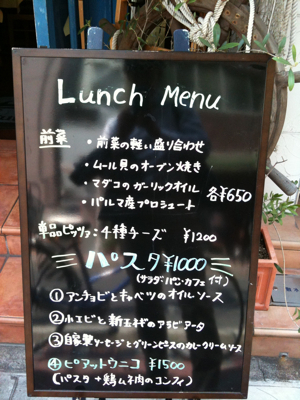 Lunch Menu
前菜
・前菜の軽い盛り合わせ
・ムール貝のオーブン焼き
・マダコのガーリックオイル
・パルマ産プロシュート
各¥650
単品ピッツァ:4種チーズ ¥1200
パスタ ¥1000
(サラダ・パン・カフェ付)
①アンチョビとキャベツのオイルソース
②小エビと新玉ねぎのアラビアータ
③自家製ソーセージとグリーンピースのカレークリームソース
④ピアットウニコ ¥1500
(パスタ+鶏ムネ肉のコンフィ)